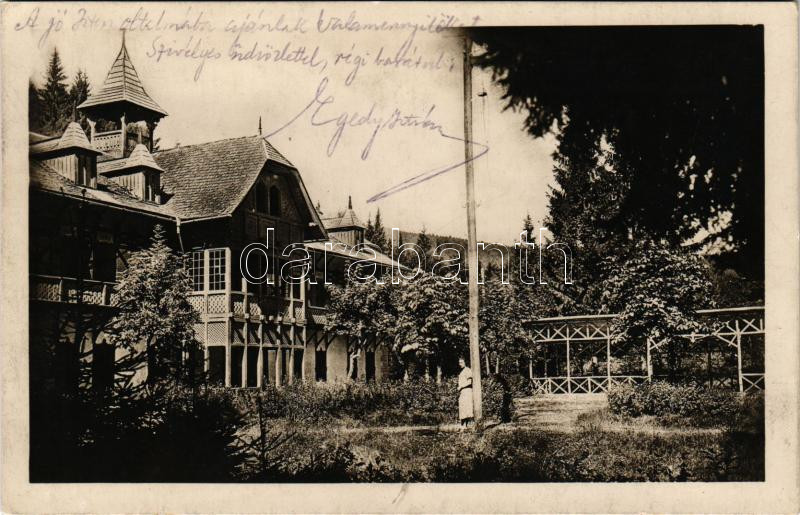 A jó Isten oltalmába ajánlak Valamennyitöket
Szivélyes üdvözlettel, régi barátod:
Egedy István
darabanth